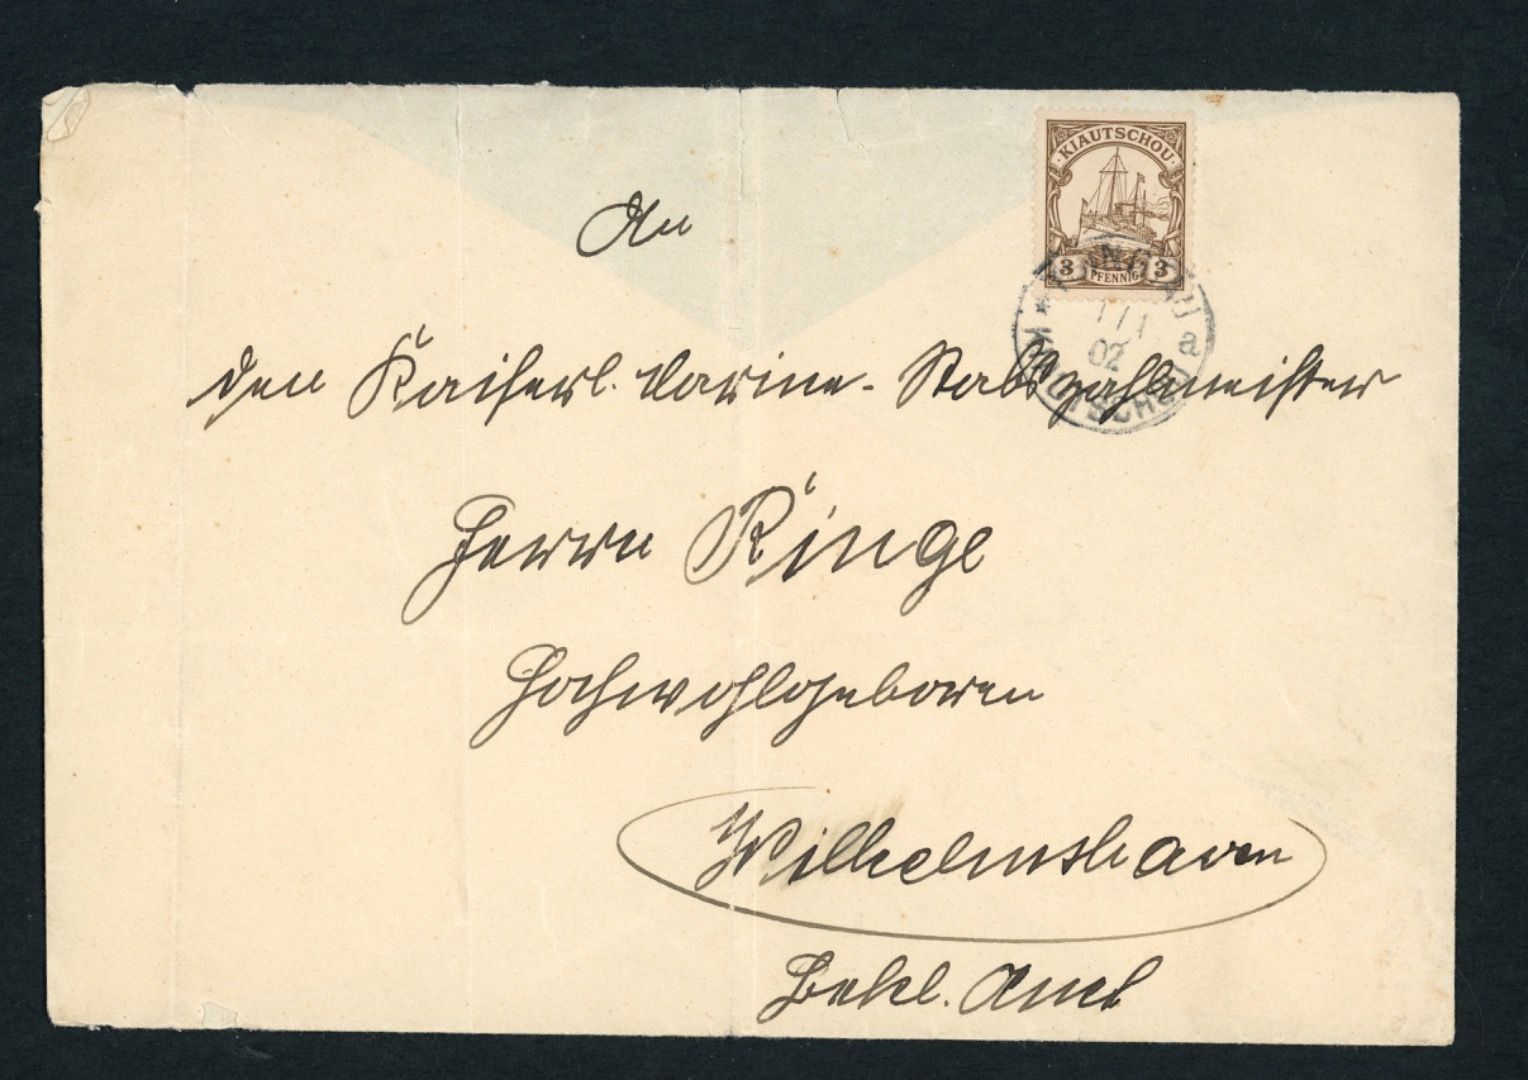 KIAUTSCHOU
3 PFENNIG 3
TSINGTAU
1/1
02 a
KIAUTSCHOU
An
den Kaiserl. Marine-Stabszahlmeister
Herrn Ringe
Hochwohlgeboren
Wilhelmshaven
Bekl. Amt